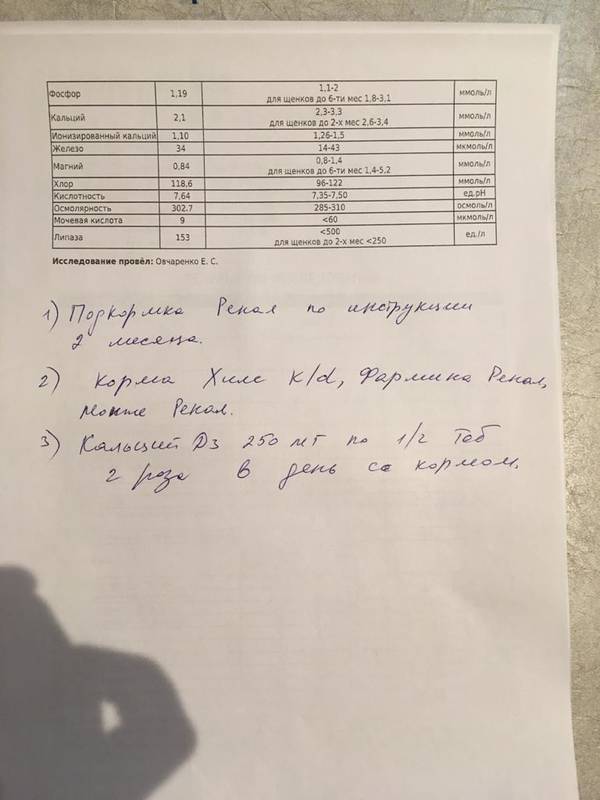 Фосфор 1,19 1,1-2 ммоль/л
для щенков до 6-ти мес 1,8-3,1
Кальций 2,1 2,3-3,3 ммоль/л
для щенков до 2-х мес 2,6-3,4
Ионизированный кальций 1,10 1,26-1,5 ммоль/л
Железо 34 14-43 мкмоль/л
Магний 0,84 0,8-1,4 ммоль/л
для щенков до 6-ти мес 1,4-5,2
Хлор 118,6 96-122 ммоль/л
Кислотность 7,64 7,35-7,50 ед.pH
Осмолярность 302,7 285-310 осмоль/л
Мочевая кислота 9 <60 мкмоль/л
Липаза 153 <500 ед./л
для щенков до 2-х мес <250
Исследование провёл: Овчаренко Е. С.
1) Подкормка Ренал по инструкции
2 месяца.
2) Корма Хилс k/d, Фармина Ренал,
Монже Ренал.
3) Кальций Д3 250 мг по 1/2 таб
2 раза в день с кормом.